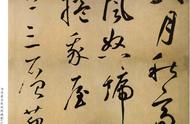 八月秋高
風怒號
捲我屋
上三重茅